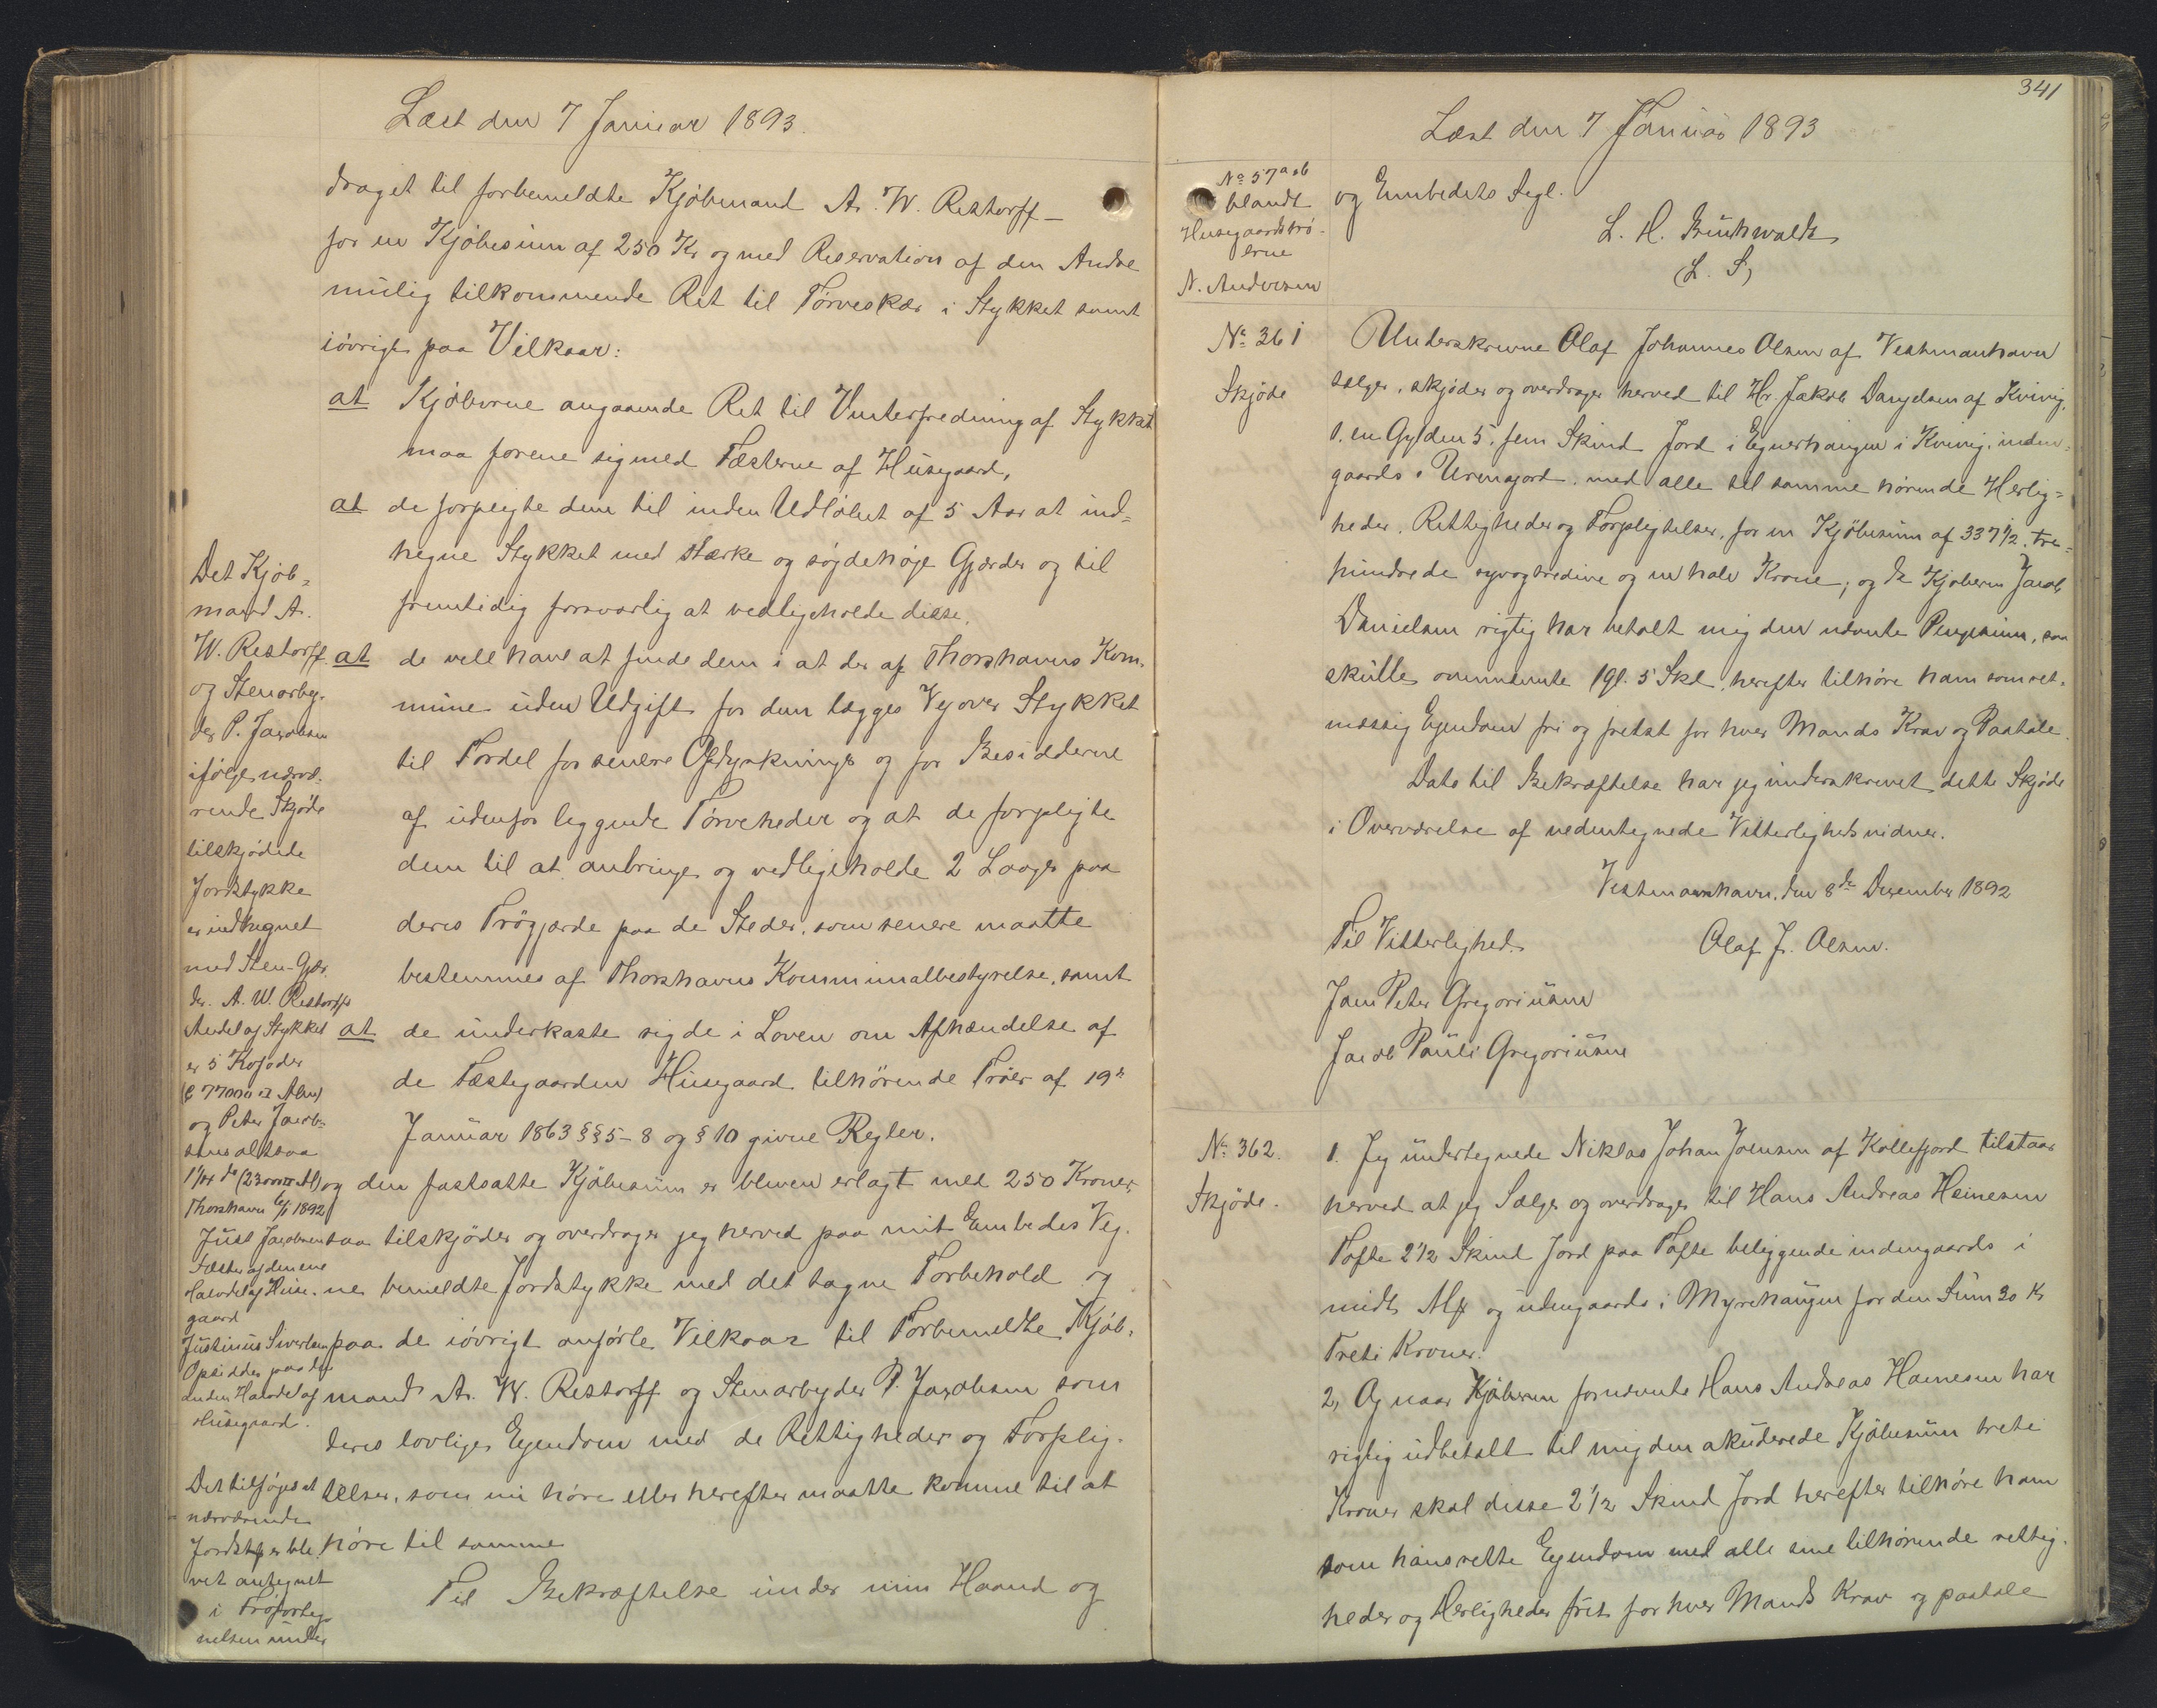 Læst den 7 Januar 1893.
draget til forbemeldte Kjöbmand A. W. Restorff —
for en Kjöbesum af 250 Kr og med Reservation af den Andre
mulig tilkommende Ret til Törveskær i Stykket samt
iövrigt paa Vilkaar:
at Kjöberne angaaende Ret til Vinterfredning af Stykket
maa forene sig med Fæsterne af Husegaard,
at de forpligte dem til inden Udlöbet af 5 Aar at ind=
hegne Stykket med stærke og höje Gjærder og til
fremtidig forsvarlig at vedligeholde disse.
at de vill have at finde dem i at der af Thorshavns Kom-
mune uden Udgift for dem lægges Vej over Stykket
til Fordel for senere Opdyrkninger og for Besidderne
af udenfor liggende Törveheder og at de forpligte
dem til at anbringe og vedligeholde 2 Laager paa
deres Trögjærde paa de Steder, som senere maatte
bestemmes af Thorshavns Kommunalbestyrelse, samt
at de underkaste sig de i Loven om Afhændelse af
de Fæstegaarden Husegaard tilhörende Tröer af 19de
Januar 1863 §§ 5-8 og § 10 givne Regler.
og den fastsatte Kjöbesum er bleven erlagt med 250 Kroner,
saa tilskjöder og overdrager jeg herved paa mit Embedes Veg-
ne bemeldte Jordstykke med det tagne Forbehold og
paa de iövrigt anförte Vilkaar til Forbemeldte Kjöb-
mand A. W. Restorff og Stenarbejder P. Jacobsen som
deres lovlige Ejendom med de Rettigheder og Forplig-
telser, som nu höre eller herefter maatte komme til at
höre til samme
Til Bekræftelse under min Haand og
Det Kjöb-
mand A.
W. Restorff
og Stenarbej-
der P. Jacobsen
ifölge nærvæ-
rende Skjöde
tilskjödede
Jordstykke
er indhegnet
med Sten-Gjær
der. A. W. Restorffs
Andel af Stykket
er 5 Kofoder
(c 77000 □ Alen)
og Peter Jacob-
sens altsaa
1 1/24 do (23000 □ Al)
Thorshavn 6/1 1892
Just Jacobsen
Fæster af den ene
Halvdel af Huse-
gaard
Justinus Sivertsen
Opsidder paa den
anden Halvdel af
Husegaard.
Det tilföjes at
nærværende
Jordst. er ble-
vet antegnet
i Tröforteg-
nelsen under
341
Læst den 7 Januar 1893
No 57 a & b
blandt
Husegaardströ-
erne
N. Andersen
og Embedets Segl.
L. H. Buchwaldt
(L. S)
No 361
Skjöde
Underskrevne Olaf Johannes Olsen af Vestmanhavn
sælger, skjöder og overdrager herved til Hr. Jakob Danjelsen af Kvivig,
1. en Gylden 5. fem Skind Jord i Egnerhaugen i Kvivig, inden-
gaards Urensjord. med alle til samme hörende Herlig=
heder, Rettigheder og Forpligtelser, for en Kjöbesum af 337 1/2, tre-
hundrede syvogtredive og en halv Krone; og da Kjöberen Jacob
Danielsen rigtig har betalt mig den nævnte Pengesum, saa
skulle ommeldte 1 gl. 5 Skd. herefter tilhöre ham som ret-
mæssig Ejendom fri og frelst for hver Mands Krav og Paatale.
Dets til Bekræftelse har jeg underskrevet dette Skjöde
i Overværelse af nedentegnede Vitterlighedsvidner.
Vestmannhavn, den 8de December 1892
Til Vitterlighed. Olaf J. Olsen.
Jens Peter Gregoriusen
Jacob Pauli Gregoriusen
No 362.
Skjöde.
1. Jeg undertegnede Niklas Johan Joensen af Kollefjord tilstaar
herved at jeg Sælger og overdrager til Hans Andreas Heinesen
Tofte 2 1/2 Skind Jord paa Tofte beliggende indengaards i
midt Alf og udengaards i Myrehaugen for den Sum 30 Kr
Treti Kroner.
2, Og naar Kjöberen fornævnte Hans Andreas Hainesen har
rigtig udbetalt til mig den akuderede Kjöbesum treti
Kroner skal disse 2 1/2 Skind Jord herefter tilhöre ham
som hans rette Ejendom med alle sine tilhörende rettig-
heder og Herligheder frit for hver Mands Krav og paatale